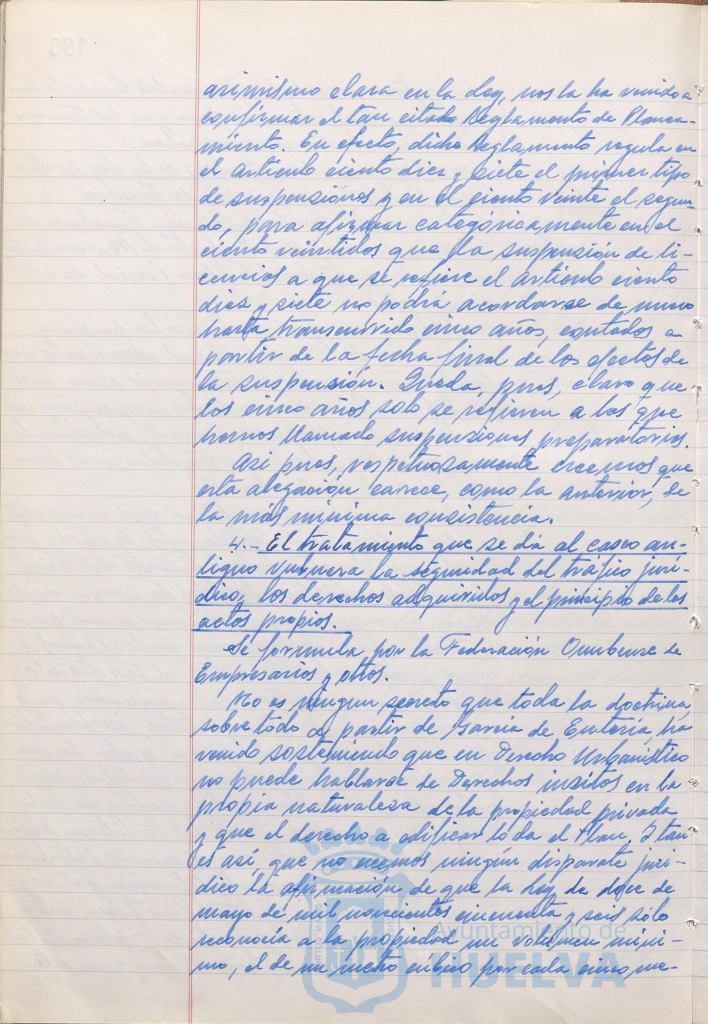 asimismo clara en la Ley, nos la ha venido a
confirmar el tan citado Reglamento de Planea-
miento. En efecto, dicho Reglamento regula en
el artículo ciento diez y siete el primer tipo
de suspensiones y en el ciento veinte el segun-
do, para afirmar categóricamente en el
ciento veintidos que "la suspensión de li-
cencias a que se refiere el artículo ciento
diez y siete no podrá acordarse de nuevo
hasta transcurrido cinco años, contados a
partir de la fecha final de los efectos de
la suspensión. Queda, pues, claro que
los cinco años solo se refieren a las que
hemos llamado suspensiones preparatorias.
Asi pues, respetuosamente creemos que
esta alegación carece, como la anterior, de
la más mínima consistencia.
4.- El tratamiento que se dá al casco an-
tiguo vulnera la seguridad del tráfico jurí-
dico, los derechos adquiridos y el principio de los
actos propios.
Se formula por la Federación Onubense de
Empresarios y otros.
No es ningun secreto que toda la doctrina,
sobre todo a partir de García de Enterría, ha
venido sosteniendo que en Derecho Urbanístico
no puede hablarse de Derechos insitos en la
propia naturaleza de la propiedad privada
y que el derecho a edificar lo da el Plan, I tan
es así, que no vemos ningún disparate jurí-
dico la afirmación de que la Ley de doce de
mayo de mil novecientos cincuenta y seis sólo
reconocía a la propiedad un volumen míni-
mo, el de un metro cúbico por cada cinco me-
Ayuntamiento de
HUELVA